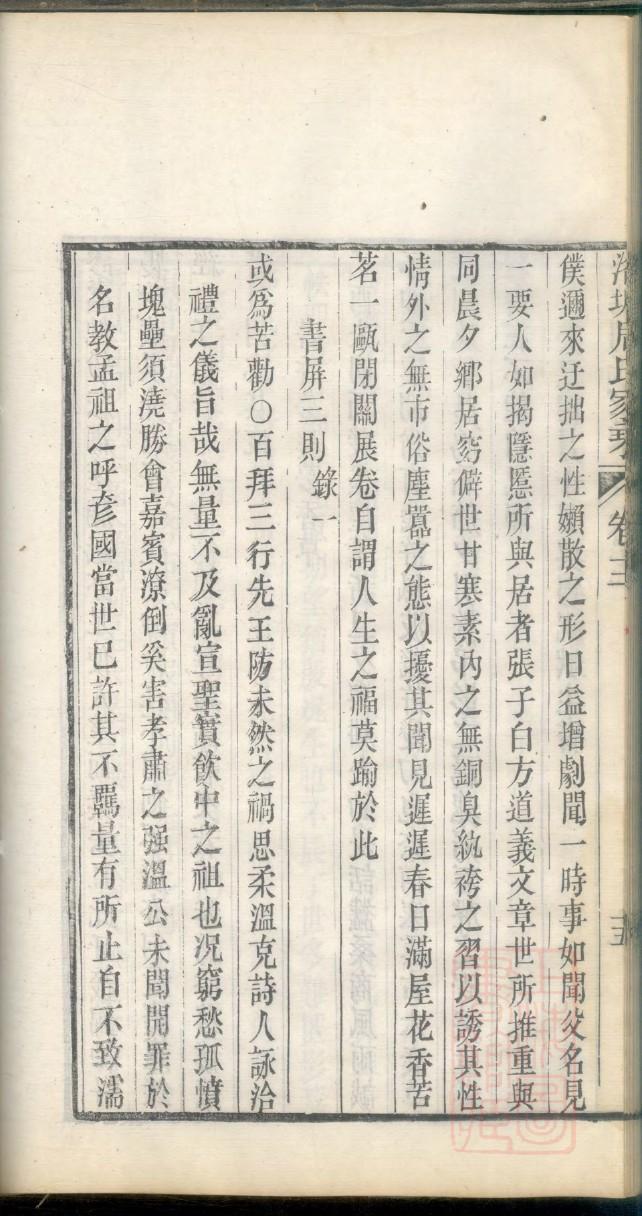 周氏家 卷三
十五
僕邇來迂拙之性嬾散之形日益增劇聞一時事如聞父名見
一要人如揭隱慝所與居者張子白方道義文章世所推重與
同晨夕鄉居窮僻世甘寒素內之無銅臭紈袴之習以誘其性
情外之無市俗塵囂之態以擾其聞見遲遲春日滿屋花香苦
茗一甌閉關展卷自謂人生之福莫踰於此
書屏三則 錄一
或爲苦勸〇百拜三行先王防未然之禍思柔溫克詩人詠洽
禮之儀旨哉無量不及亂宣聖實飲中之祖也况窮愁孤憤
塊壘須澆勝會嘉賓潦倒奚害孝肅之强溫公未聞開罪於
名教孟祖之呼彥國當世已許其不羈量有所止自不致濡